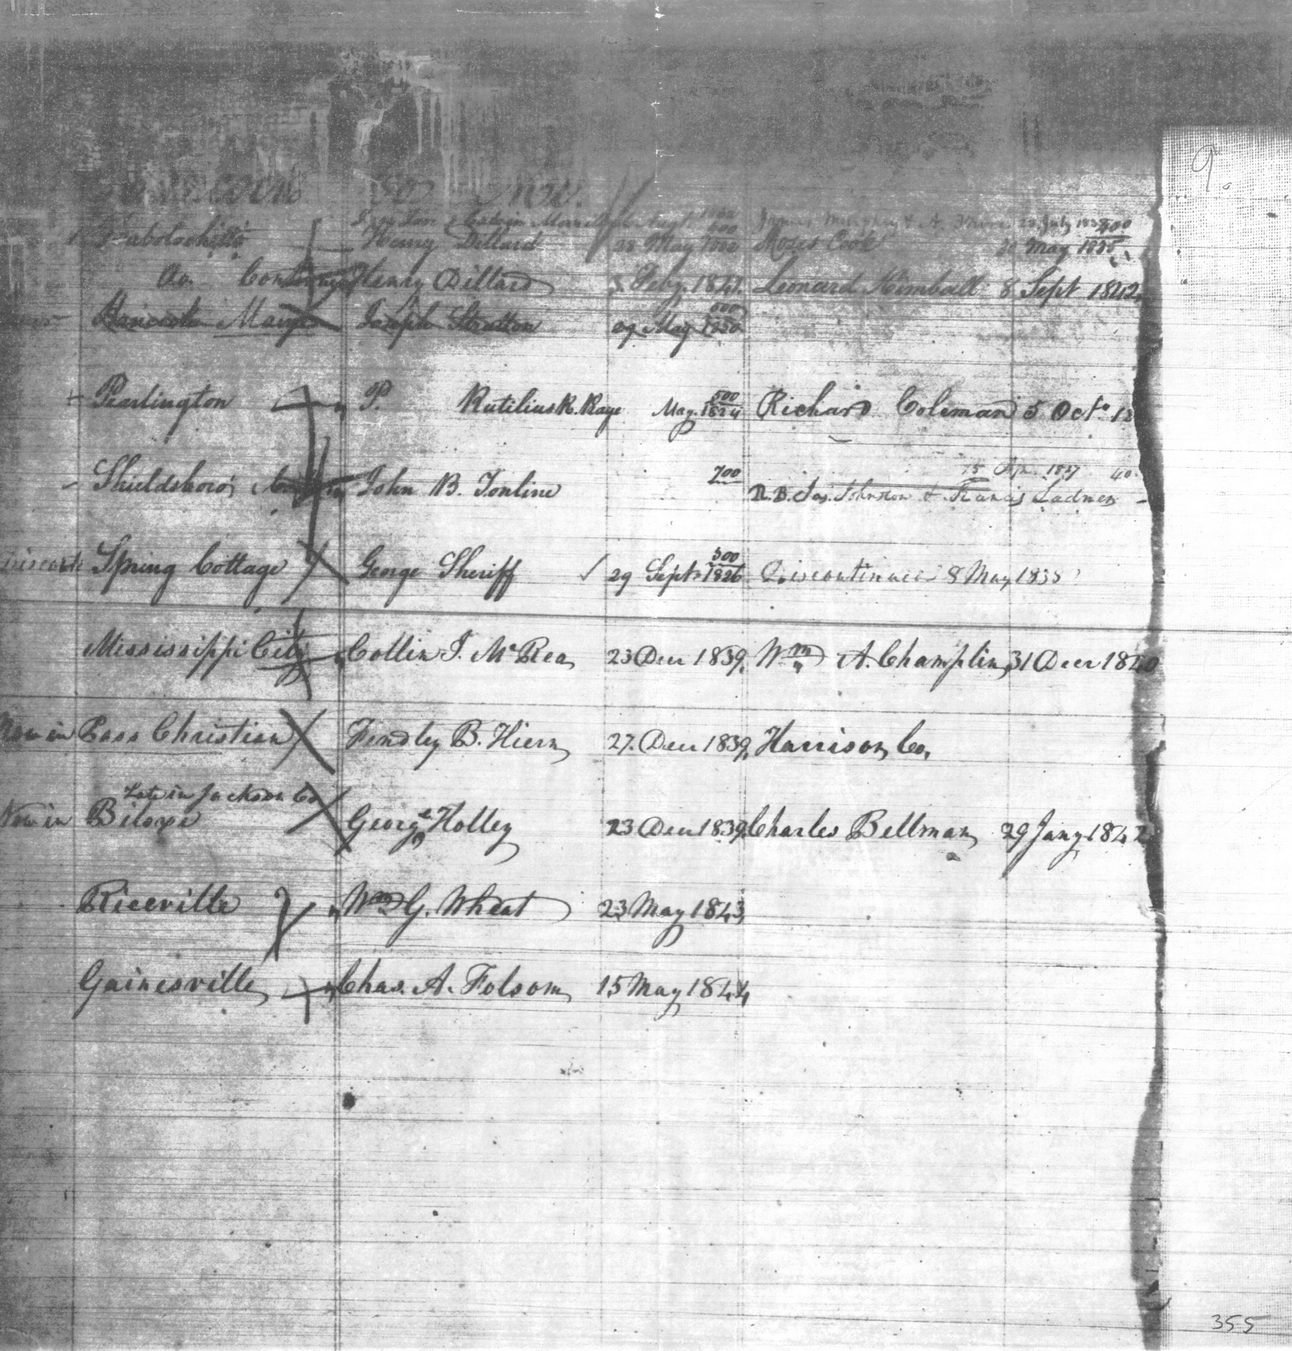 9.
Hancock Co.
500
Henry Dillard 28 May Moses Cook 20 May 1835
Do. Henry Dillard Feby. 1841. Leonard Kimball 8 Sept 1842.
500
Hancock Joseph Stratton 09 May 1830
500
Pearlington P. Rutilius R. Raye May. 1824 Richard Coleman 5 Octr. 18
700 15 1837 40.
Shieldsboro' John B. Tonline N.B. Jas. Johnston & Francis Ladner
300
Spring Cottage George Sheriff 29 Sept. 1826 Discontinued 8 May 1835
Mississippi City Collin J. McRea 23 Decr 1839. Wm. A. Champlin, 31 Decr 1840
Now in Pass Christian Findley B. Hiern 27. Decr 1839, Harrison Co,
Late in Jackson Co
Now in Biloxi George Holley 23 Decr 1839. Charles Bellman 29 Jany 1842
Riceville Wm G. Wheat 23 May 1843,
Gainesville Chas. A. Folsom, 15 May 1844
355